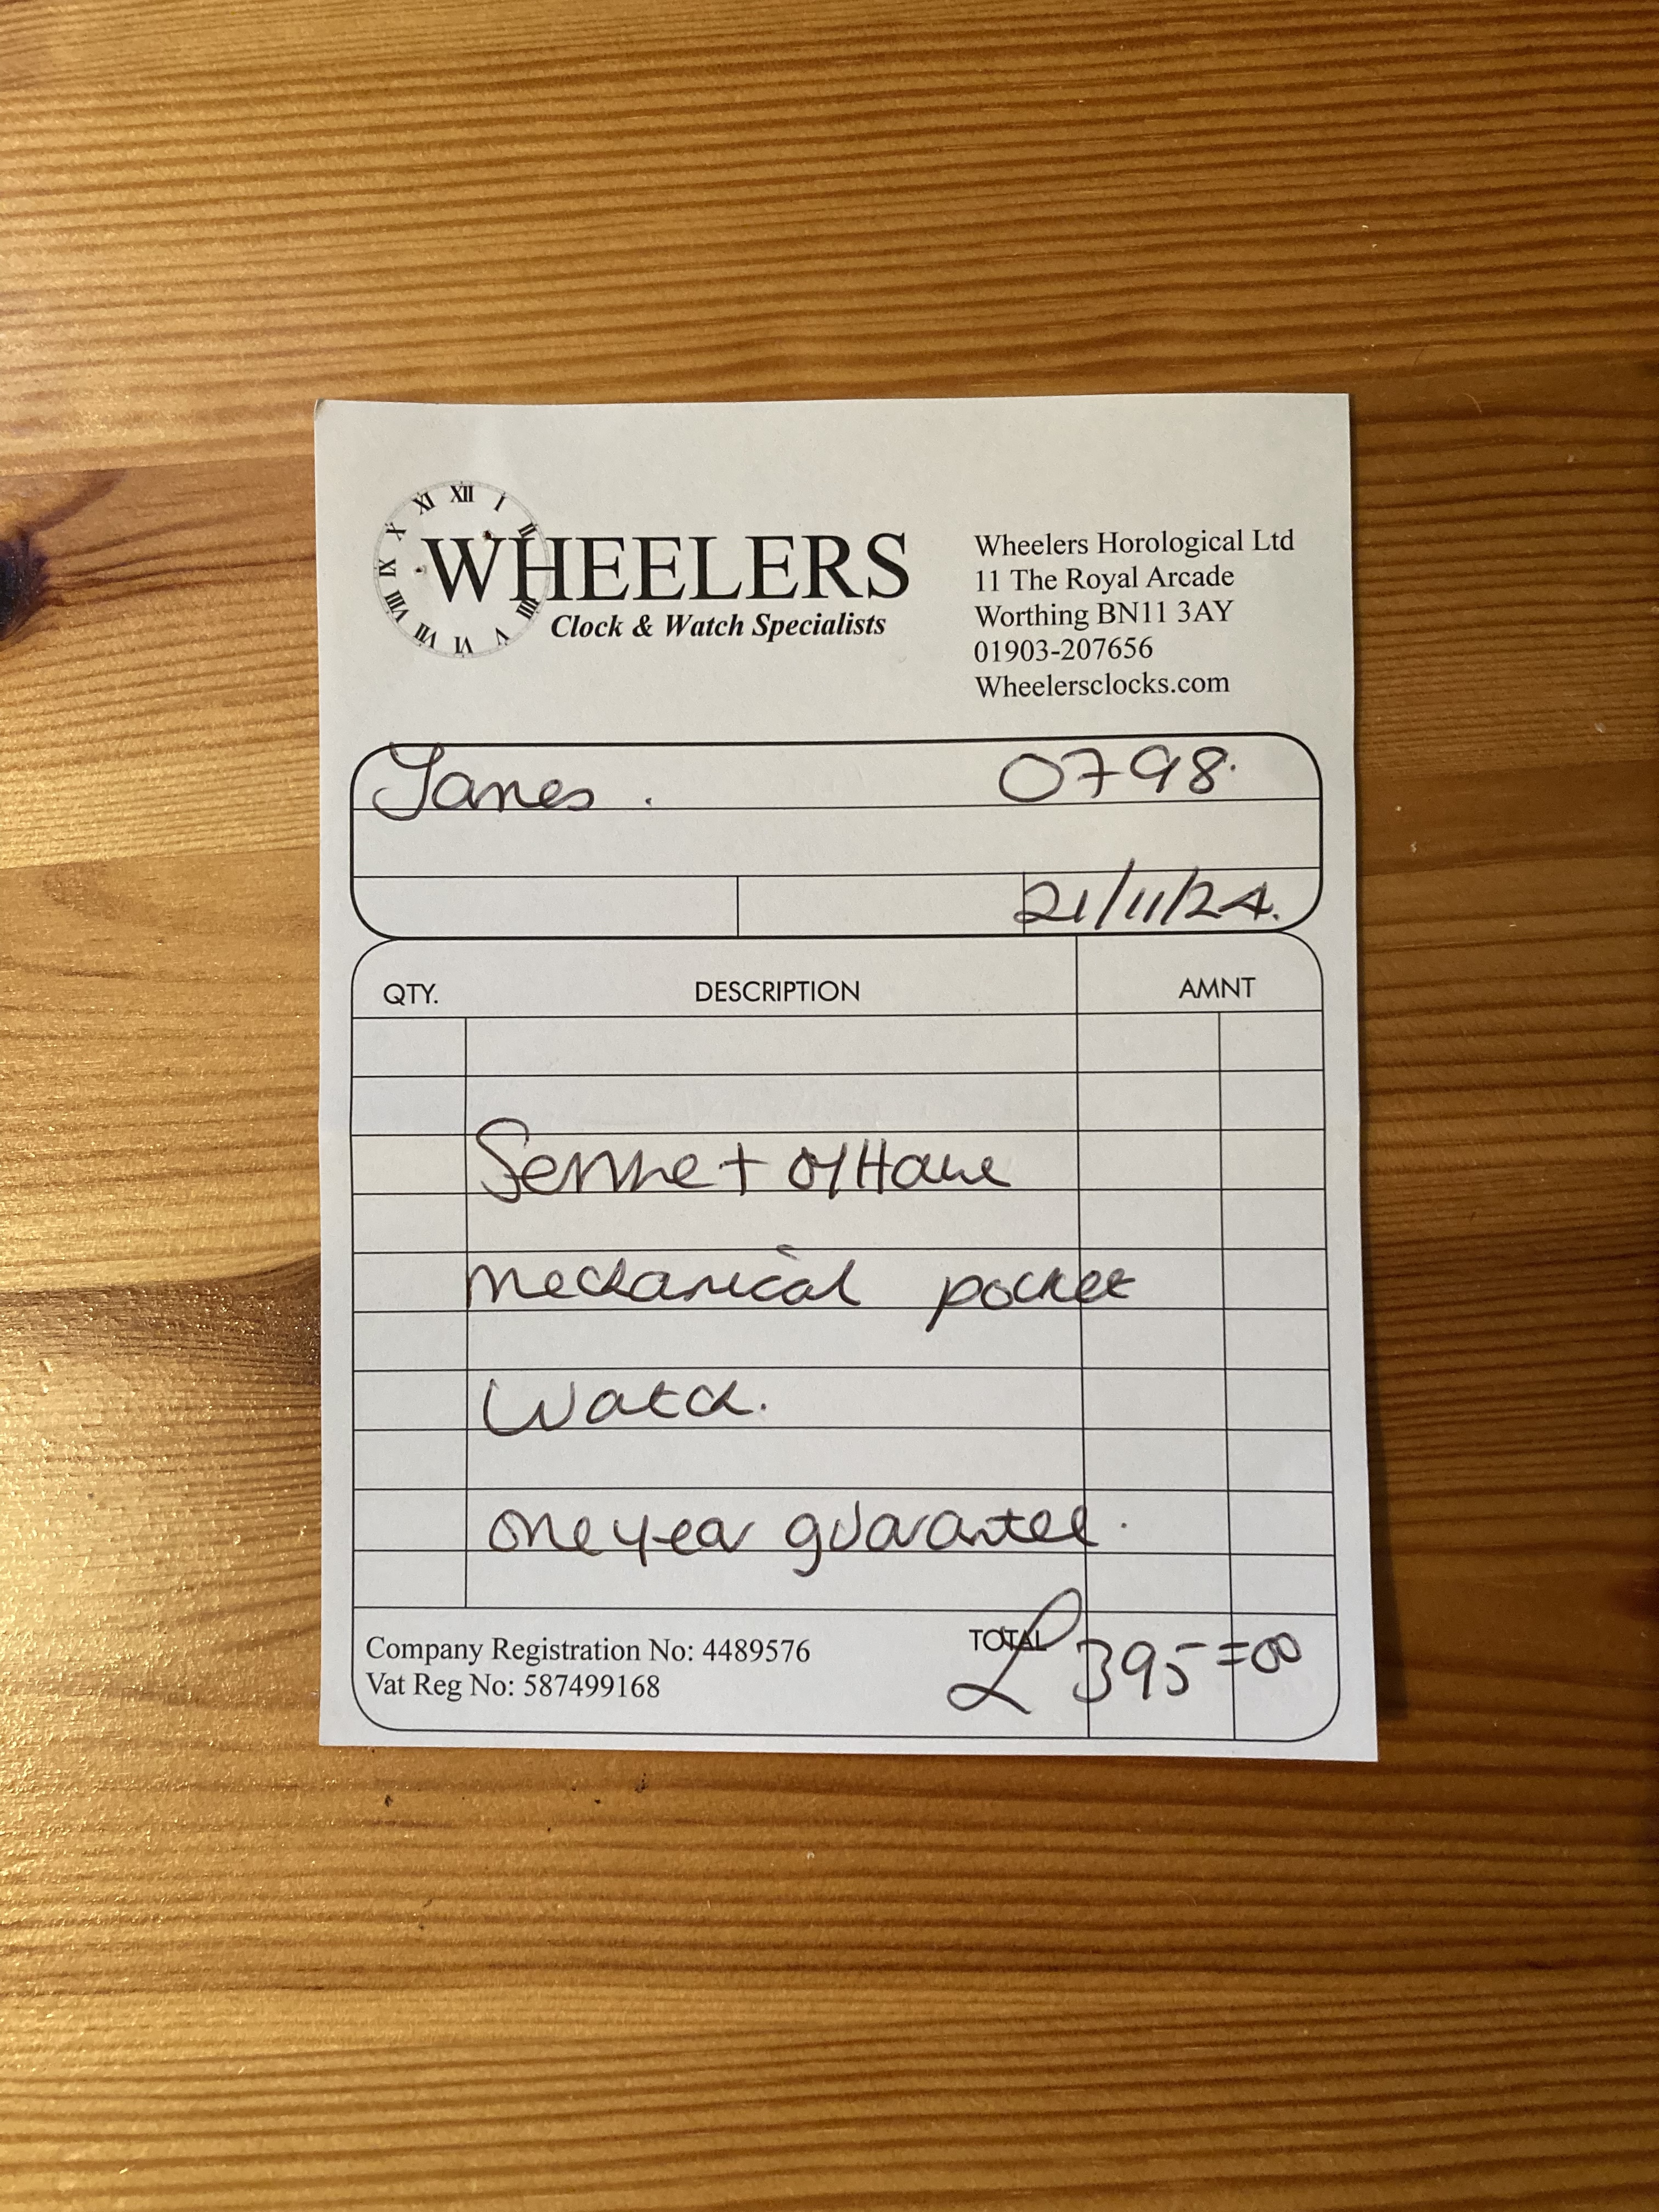 XII I II III V VI VII VIII IX X XI
WHEELERS
Clock & Watch Specialists
Wheelers Horological Ltd
11 The Royal Arcade
Worthing BN11 3AY
01903-207656
Wheelersclocks.com
Janes. 0798.
21/11/24.
QTY. DESCRIPTION AMNT
Service + O/Haul
mechanical pocket
Watch.
one year guarantee.
Company Registration No: 4489576
Vat Reg No: 587499168
TOTAL £395=00